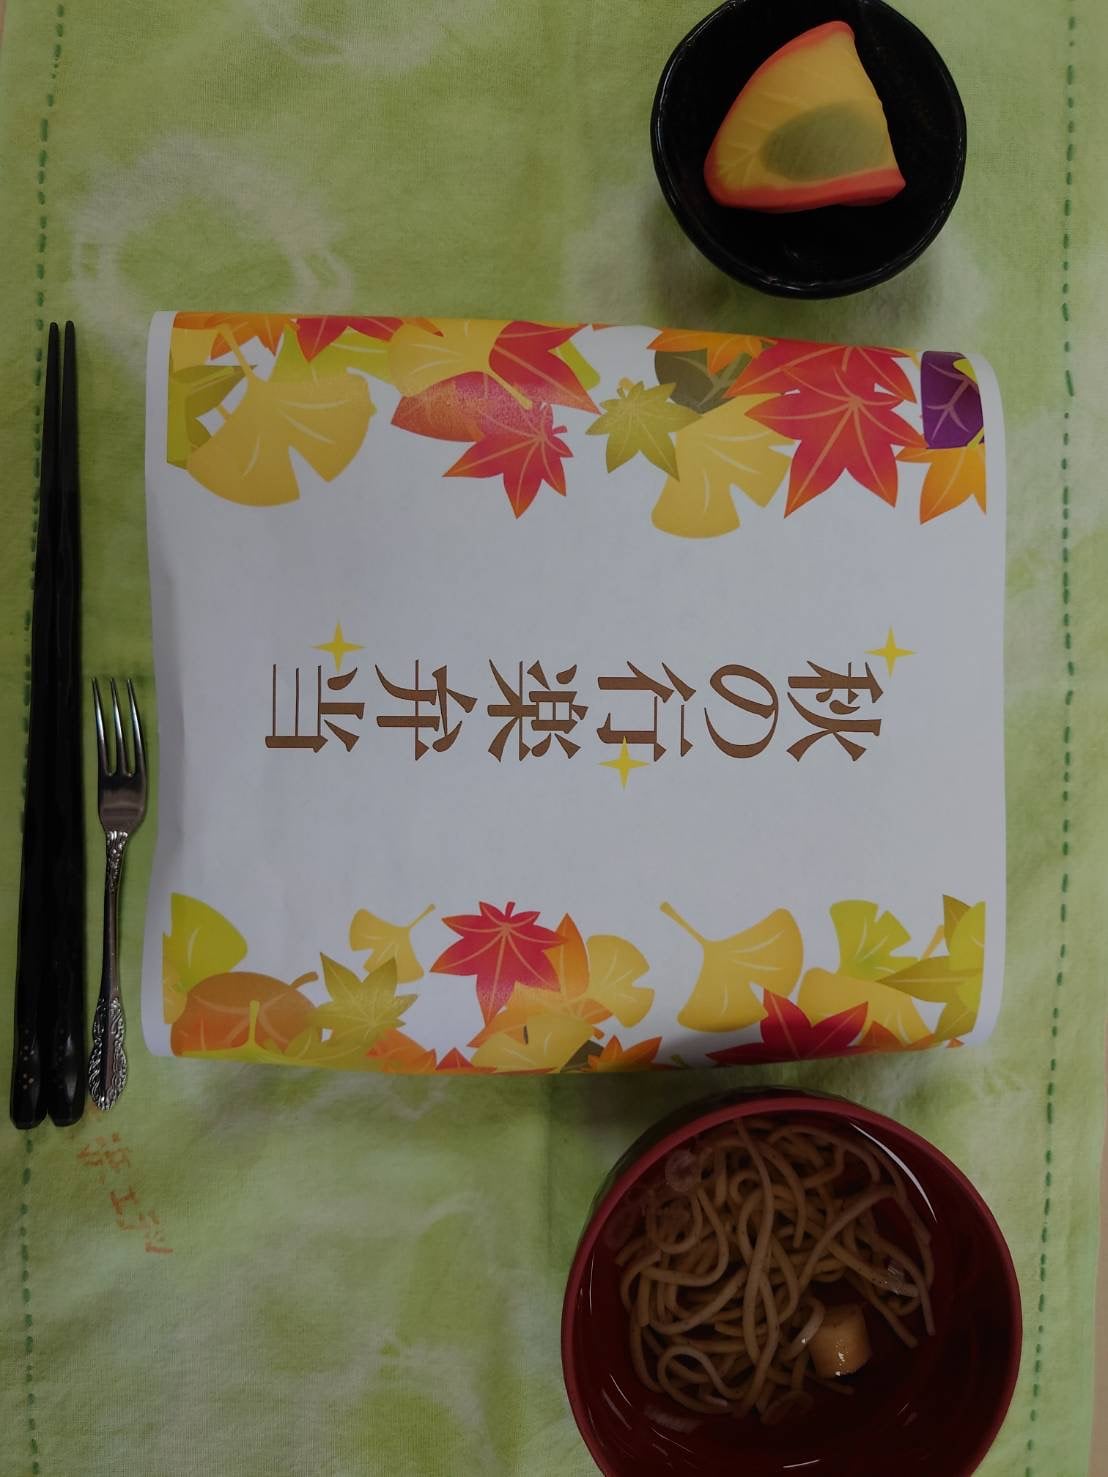 秋の行楽弁当